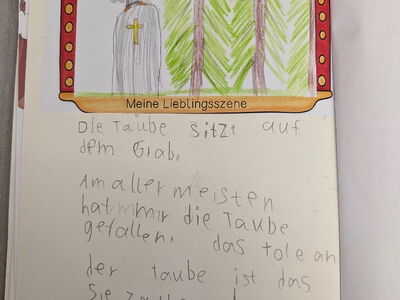 Meine Lieblingsszene
Die Taube sitzt auf
dem Grab.
Am aller meisten
hat mir die Taube
gefallen. das tole an
der taube ist das
Sie